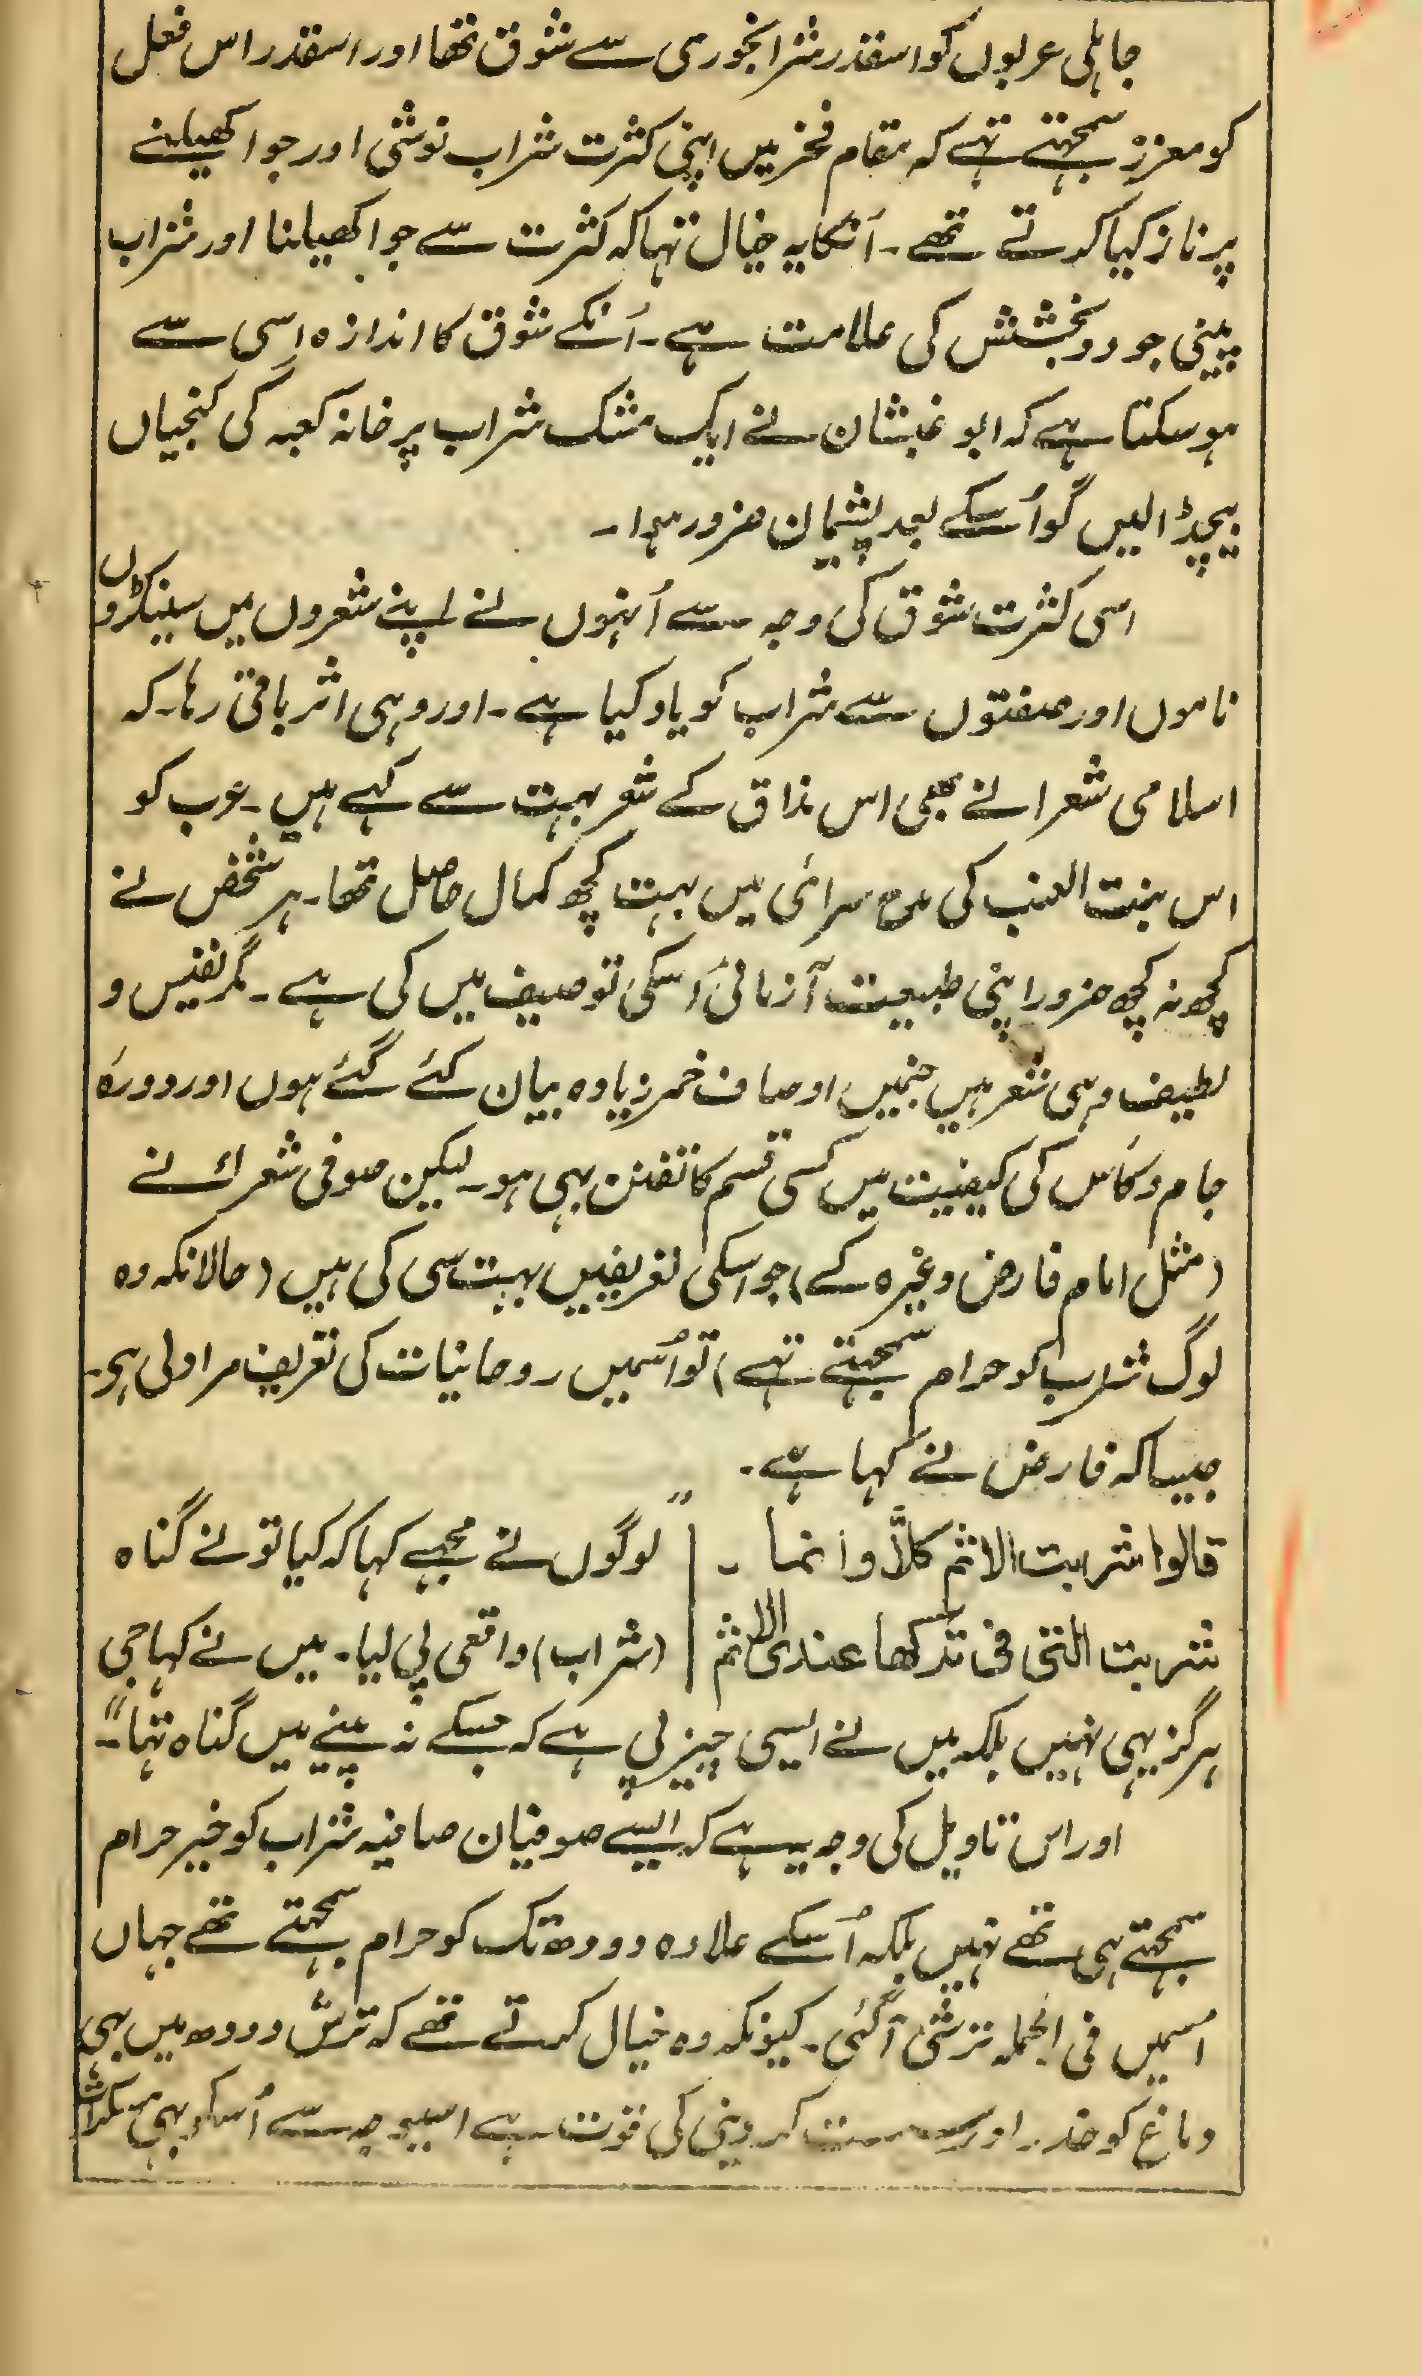 جاہلی عربوں کو اسقدر شرابخوری سے شوق تھا اور اسقدر اس فعل
کو معزز سمجہتے تہے کہ مقام فخر میں اپنی کثرت شراب نوشی اور جوا کھیلنے
پر ناز کیا کرتے تھے۔ اُنکا یہ خیال تہا کہ کثرت سے جوا کھیلنا اور شراب
پینی جود و بخشش کی علامت ہے۔ اُنکے شوق کا اندازہ اِسی سے
ہو سکتا ہے کہ ابو غبشان نے ایک مشک شراب پر خانہ کعبہ کی کنجیاں
بیچ ڈالیں گو اُسکے بعد پشیمان ضرور ہوا۔
اسی کثرت شوق کی وجہ سے اُنہوں نے اپنے شعروں میں سینکڑوں
ناموں اور صفتوں سے شراب کو یاد کیا ہے۔ اور وہی اثر باقی رہا۔ کہ
اسلامی شعرا نے بھی اس مذاق کے شعر بہت سے کہے ہیں۔ عرب کو
اس بنت العنب کی مدح سرائی میں بہت کچھ کمال حاصل تھا۔ ہر شخص نے
کچھ نہ کچھ ضرور اپنی طبیعت آزمائی اُسکی توصیف میں کی ہے۔ مگر نفیس و
لطیف وہی شعر ہیں جنمیں اوصاف خمر زیادہ بیان کئے گئے ہوں اور دورہ
جام و کاس کی کیفیت میں کسی قسم کا تفنن بہی ہو۔ لیکن صوفی شعرا نے
(مثل امام فارض وغیرہ کے) جو اسکی تعریفیں بہت سی کی ہیں (حالانکہ وہ
لوگ شراب کو حرام سمجہتے تہے) تو اُسمیں روحانیات کی تعریف مراد لی ہو۔
جیسا کہ فارض نے کہا ہے۔
قالوا شربت الاثم کلَّا وانما ۔ | "لوگوں نے مجہے کہا کہ کیا تو نے گناہ
شربت التی فی ترکھا عندی الاثم | (شراب) واقعی پی لیا۔ میں نے کہا جی
ہرگز یہی نہیں بلکہ میں نے ایسی چیز پی ہے کہ جسکے نہ پینے میں گناہ تہا"۔
اور اس تاویل کی وجہ یہ ہے کہ ایسے صوفیان صافیہ شراب کو خیر حرام
سمجہتے ہی تھے نہیں بلکہ اُسکے علاوہ دودھ تک کو حرام سمجہتے تھے جہاں
اسمیں فی الجملہ ترشی آگئی۔ کیونکہ وہ خیال کرتے تھے کہ ترش دودھ میں بہی
دماغ کو خدر اور کر دینی کی قوت ہے اسیوجہ سے اُسکو بہی